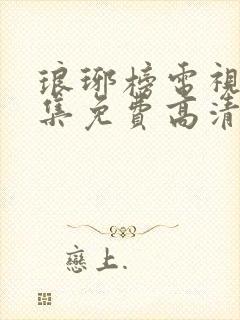 琅琊榜電視
集免費高清
戀上.